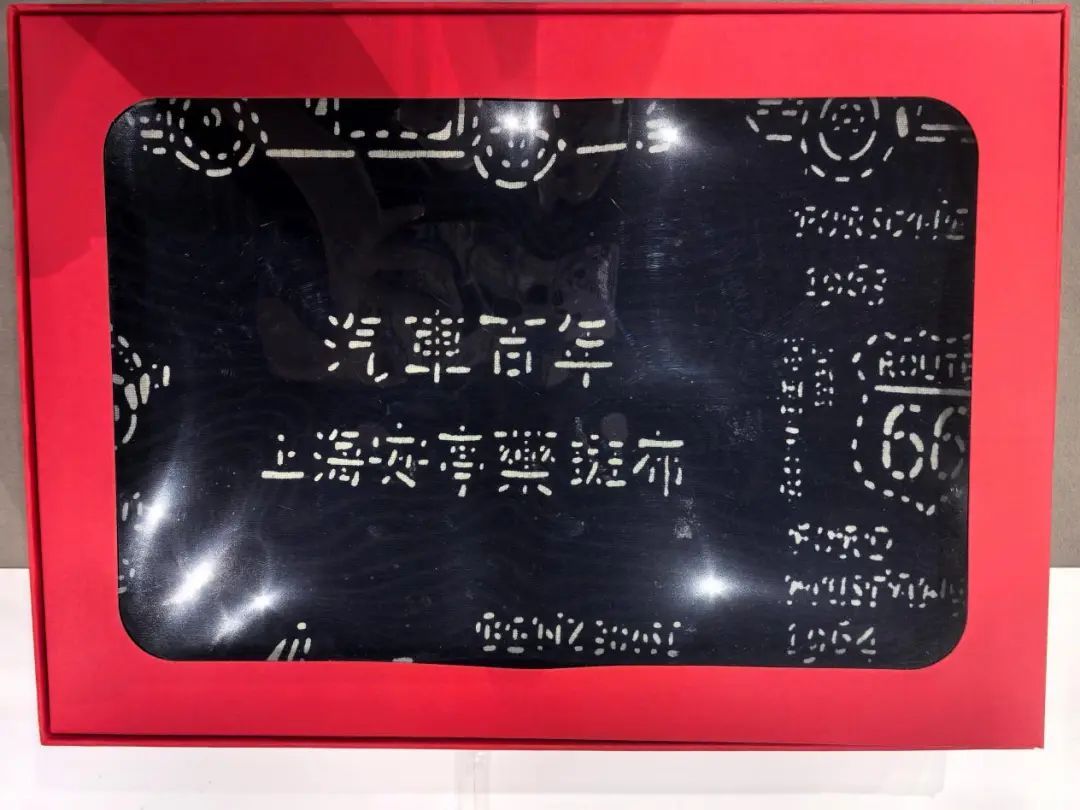 汽車百年
上海安亭藥斑布
PORSCHE
1963
ROUTE
66
FORD
MUSTANG
1964
BENZ 300SL